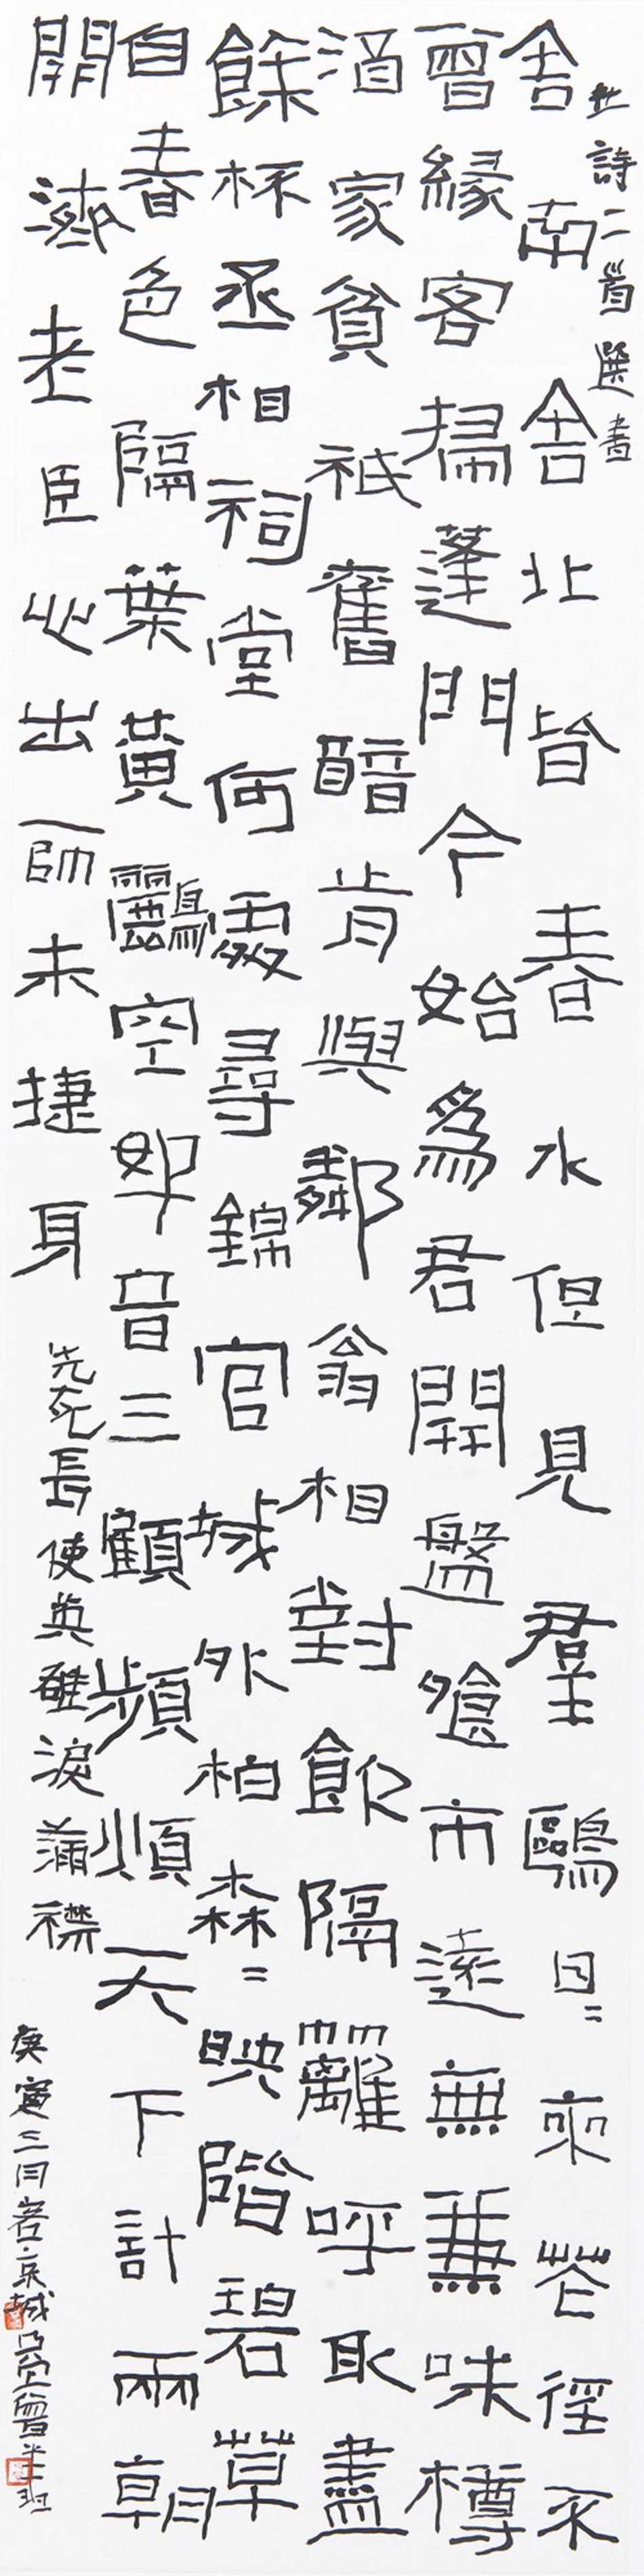 杜詩二首選書
舍南舍北皆春水但見羣鷗日=來花徑不
曾緣客掃蓬門今始爲君開盤飧市遠無兼味樽
酒家貧祗舊醅肯與鄰翁相對飲隔籬呼取盡
餘杯丞相祠堂何處尋錦官城外柏森=映階碧草
自春色隔葉黃鸝空好音三顧頻煩天下計兩朝
開濟老臣心出師未捷身先死長使英雄淚滿襟
庚寅三月客京城